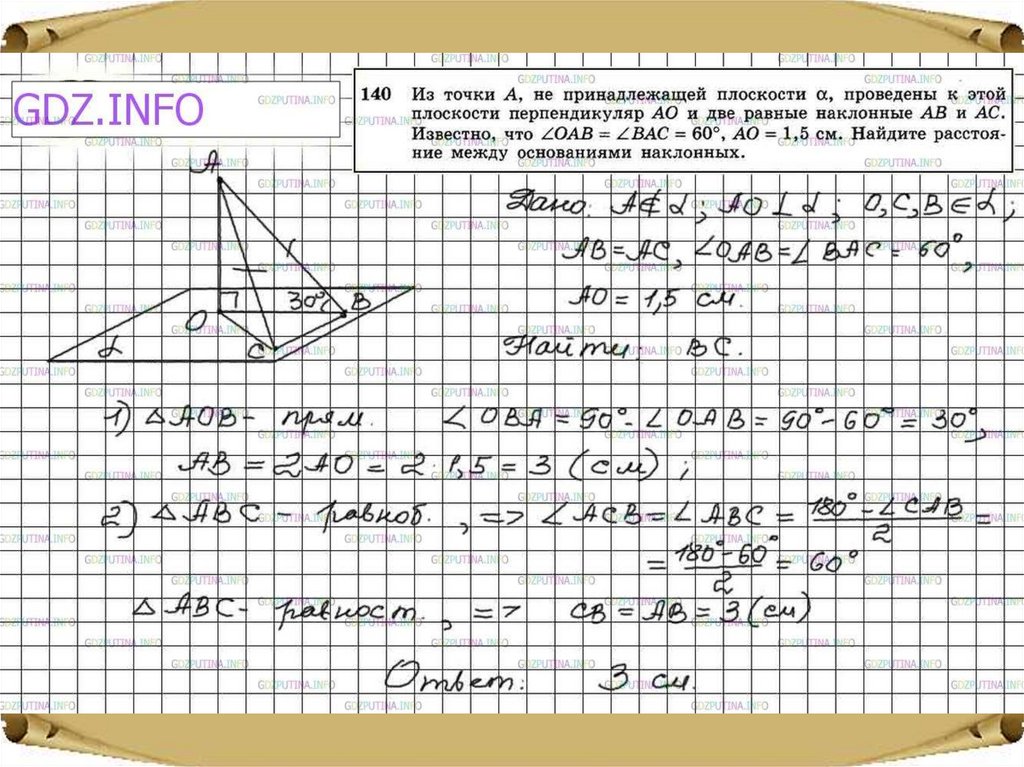 GDZ.INFO
140 Из точки A, не принадлежащей плоскости α, проведены к этой
плоскости перпендикуляр AO и две равные наклонные AB и AC.
Известно, что ∠OAB = ∠BAC = 60°, AO = 1,5 см. Найдите расстоя-
ние между основаниями наклонных.
A
O
30°
B
C
α
Дано: A∉α; AO⊥α; O,C,B∈α;
AB=AC, ∠OAB=∠BAC=60°,
AO=1,5 см.
Найти: BC.
1) △AOB- прям. ∠OBA=90°-∠OAB=90°-60°=30°,
AB=2AO=2·1,5=3 (см);
2) △ABC- равноб., => ∠ACB=∠ABC= 180°-∠CAB / 2 =
= 180°-60° / 2 = 60°
△ABC- равност., => CB=AB=3(см)
Ответ: 3 см.
GDZPUTINA.INFO